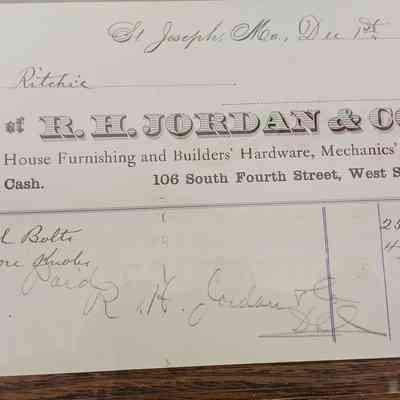 St Joseph, Mo., Dec 1st
Ritchie
of R. H. JORDAN & CO
House Furnishing and Builders' Hardware, Mechanics'
Cash. 106 South Fourth Street, West S
Bolts 25
Knobs 4
Paid
R. H. Jordan & Co